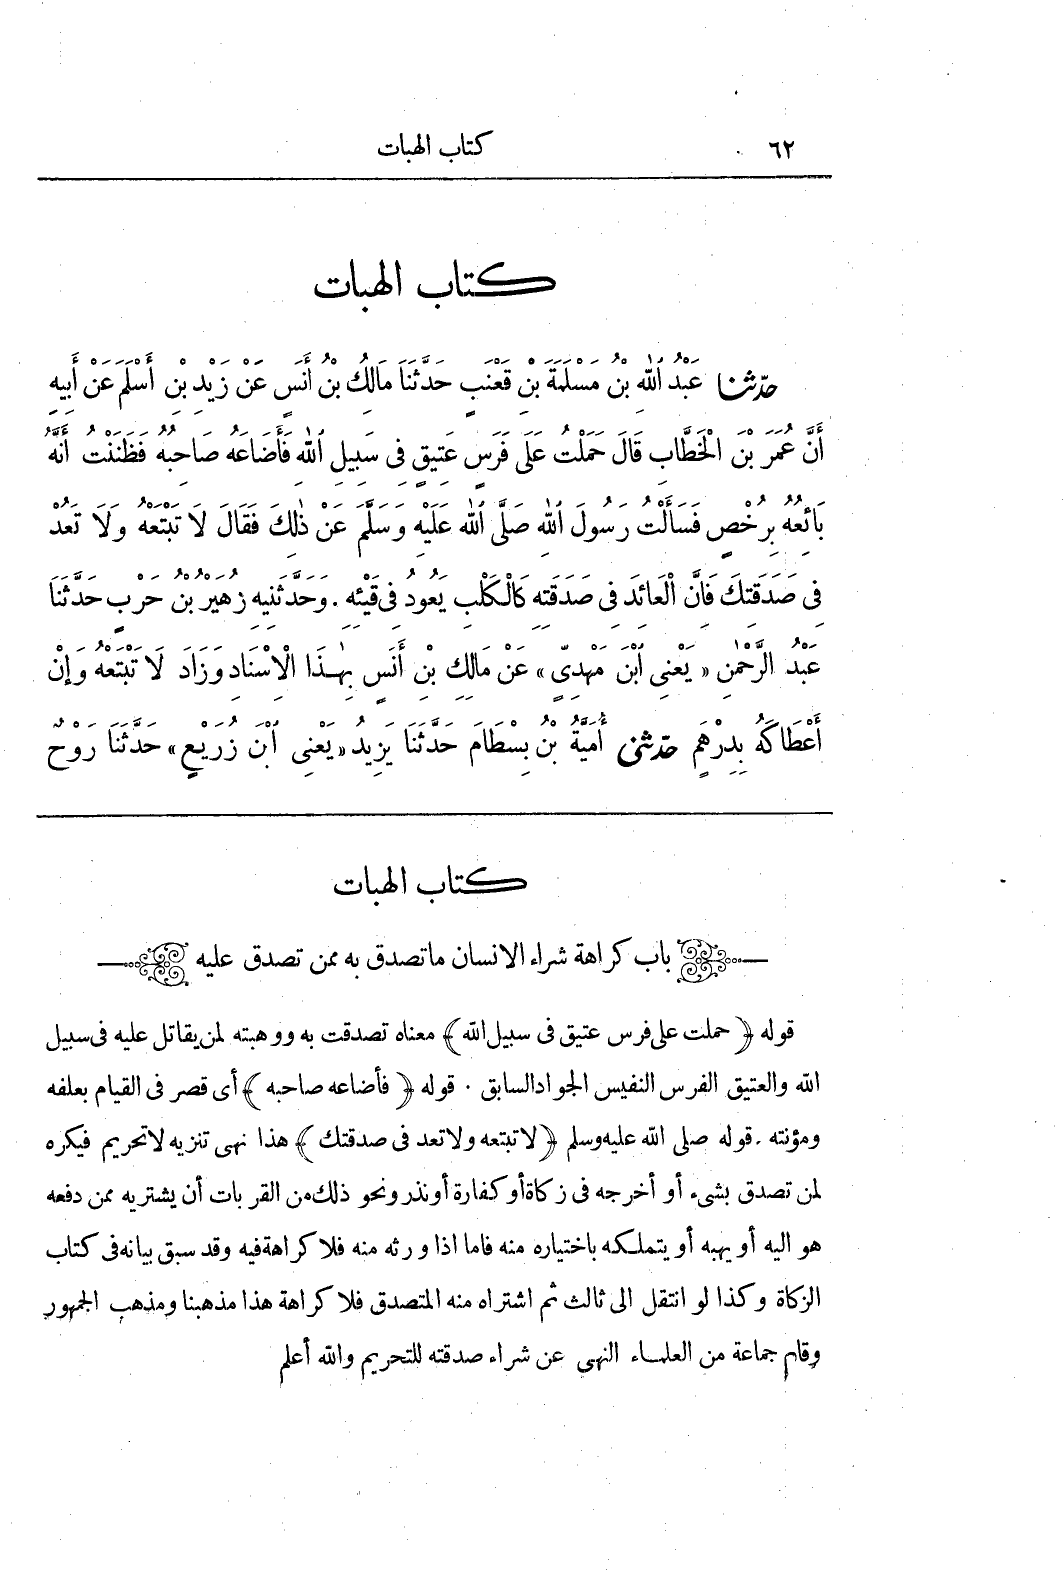 ٦٢ كتاب الهبات
كتاب الهبات
حدّثنا عَبْدُ اللهِ بْنُ مَسْلَمَةَ بْنِ قَعْنَبٍ حَدَّثَنَا مَالِكُ بْنُ أَنَسٍ عَنْ زَيْدِ بْنِ أَسْلَمَ عَنْ أَبِيهِ
أَنَّ عُمَرَ بْنَ الْخَطَّابِ قَالَ حَمَلْتُ عَلَى فَرَسٍ عَتِيقٍ فِى سَبِيلِ اللهِ فَأَضَاعَهُ صَاحِبُهُ فَظَنَنْتُ أَنَّهُ
بَائِعُهُ بِرُخْصٍ فَسَأَلْتُ رَسُولَ اللهِ صَلَّى اللهُ عَلَيْهِ وَسَلَّمَ عَنْ ذٰلِكَ فَقَالَ لَا تَبْتَعْهُ وَلَا تَعُدْ
فِى صَدَقَتِكَ فَانَّ الْعَائِدَ فِى صَدَقَتِهِ كَالْكَلْبِ يَعُودُ فِى قَيْئِهِ . وَحَدَّثَنِيهِ زُهَيْرُ بْنُ حَرْبٍ حَدَّثَنَا
عَبْدُ الرَّحْمٰنِ « يَعْنِى ابْنَ مَهْدِىٍّ » عَنْ مَالِكِ بْنِ أَنَسٍ بِهٰـذَا الْاِسْنَادِ وَزَادَ لَا تَبْتَعْهُ وَإِنْ
أَعْطَاكَهُ بِدِرْهَمٍ حدّثنى أُمَيَّةُ بْنُ بِسْطَامَ حَدَّثَنَا يَزِيدُ « يَعْنِى ابْنَ زُرَيْعٍ » حَدَّثَنَا رَوْحٌ
كتاب الهبات
باب كراهة شراء الانسان ماتصدق به ممن تصدق عليه
قوله ﴿ حملت على فرس عتيق فى سبيل الله ﴾ معناه تصدقت به ووهبته لمن يقاتل عليه فى سبيل
الله والعتيق الفرس النفيس الجواد السابق . قوله ﴿ فأضاعه صاحبه ﴾ أى قصر فى القيام بعلفه
ومؤنته . قوله صلى الله عليه وسلم ﴿ لا تبتعه ولا تعد فى صدقتك ﴾ هذا نهى تنزيه لا تحريم فيكره
لمن تصدق بشىء أو أخرجه فى زكاة أو كفارة أو نذر ونحو ذلك من القربات أن يشتريه ممن دفعه
هو اليه أو يهبه أو يتملـكه باختياره منه فاما اذا ورثه منه فلا كراهة فيه وقد سبق بيانه فى كتاب
الزكاة وكذا لو انتقل الى ثالث ثم اشتراه منه المتصدق فلا كراهة هذا مذهبنا ومذهب الجمهور
وقام جماعة من العلمـاء النهى عن شراء صدقته للتحريم والله أعلم